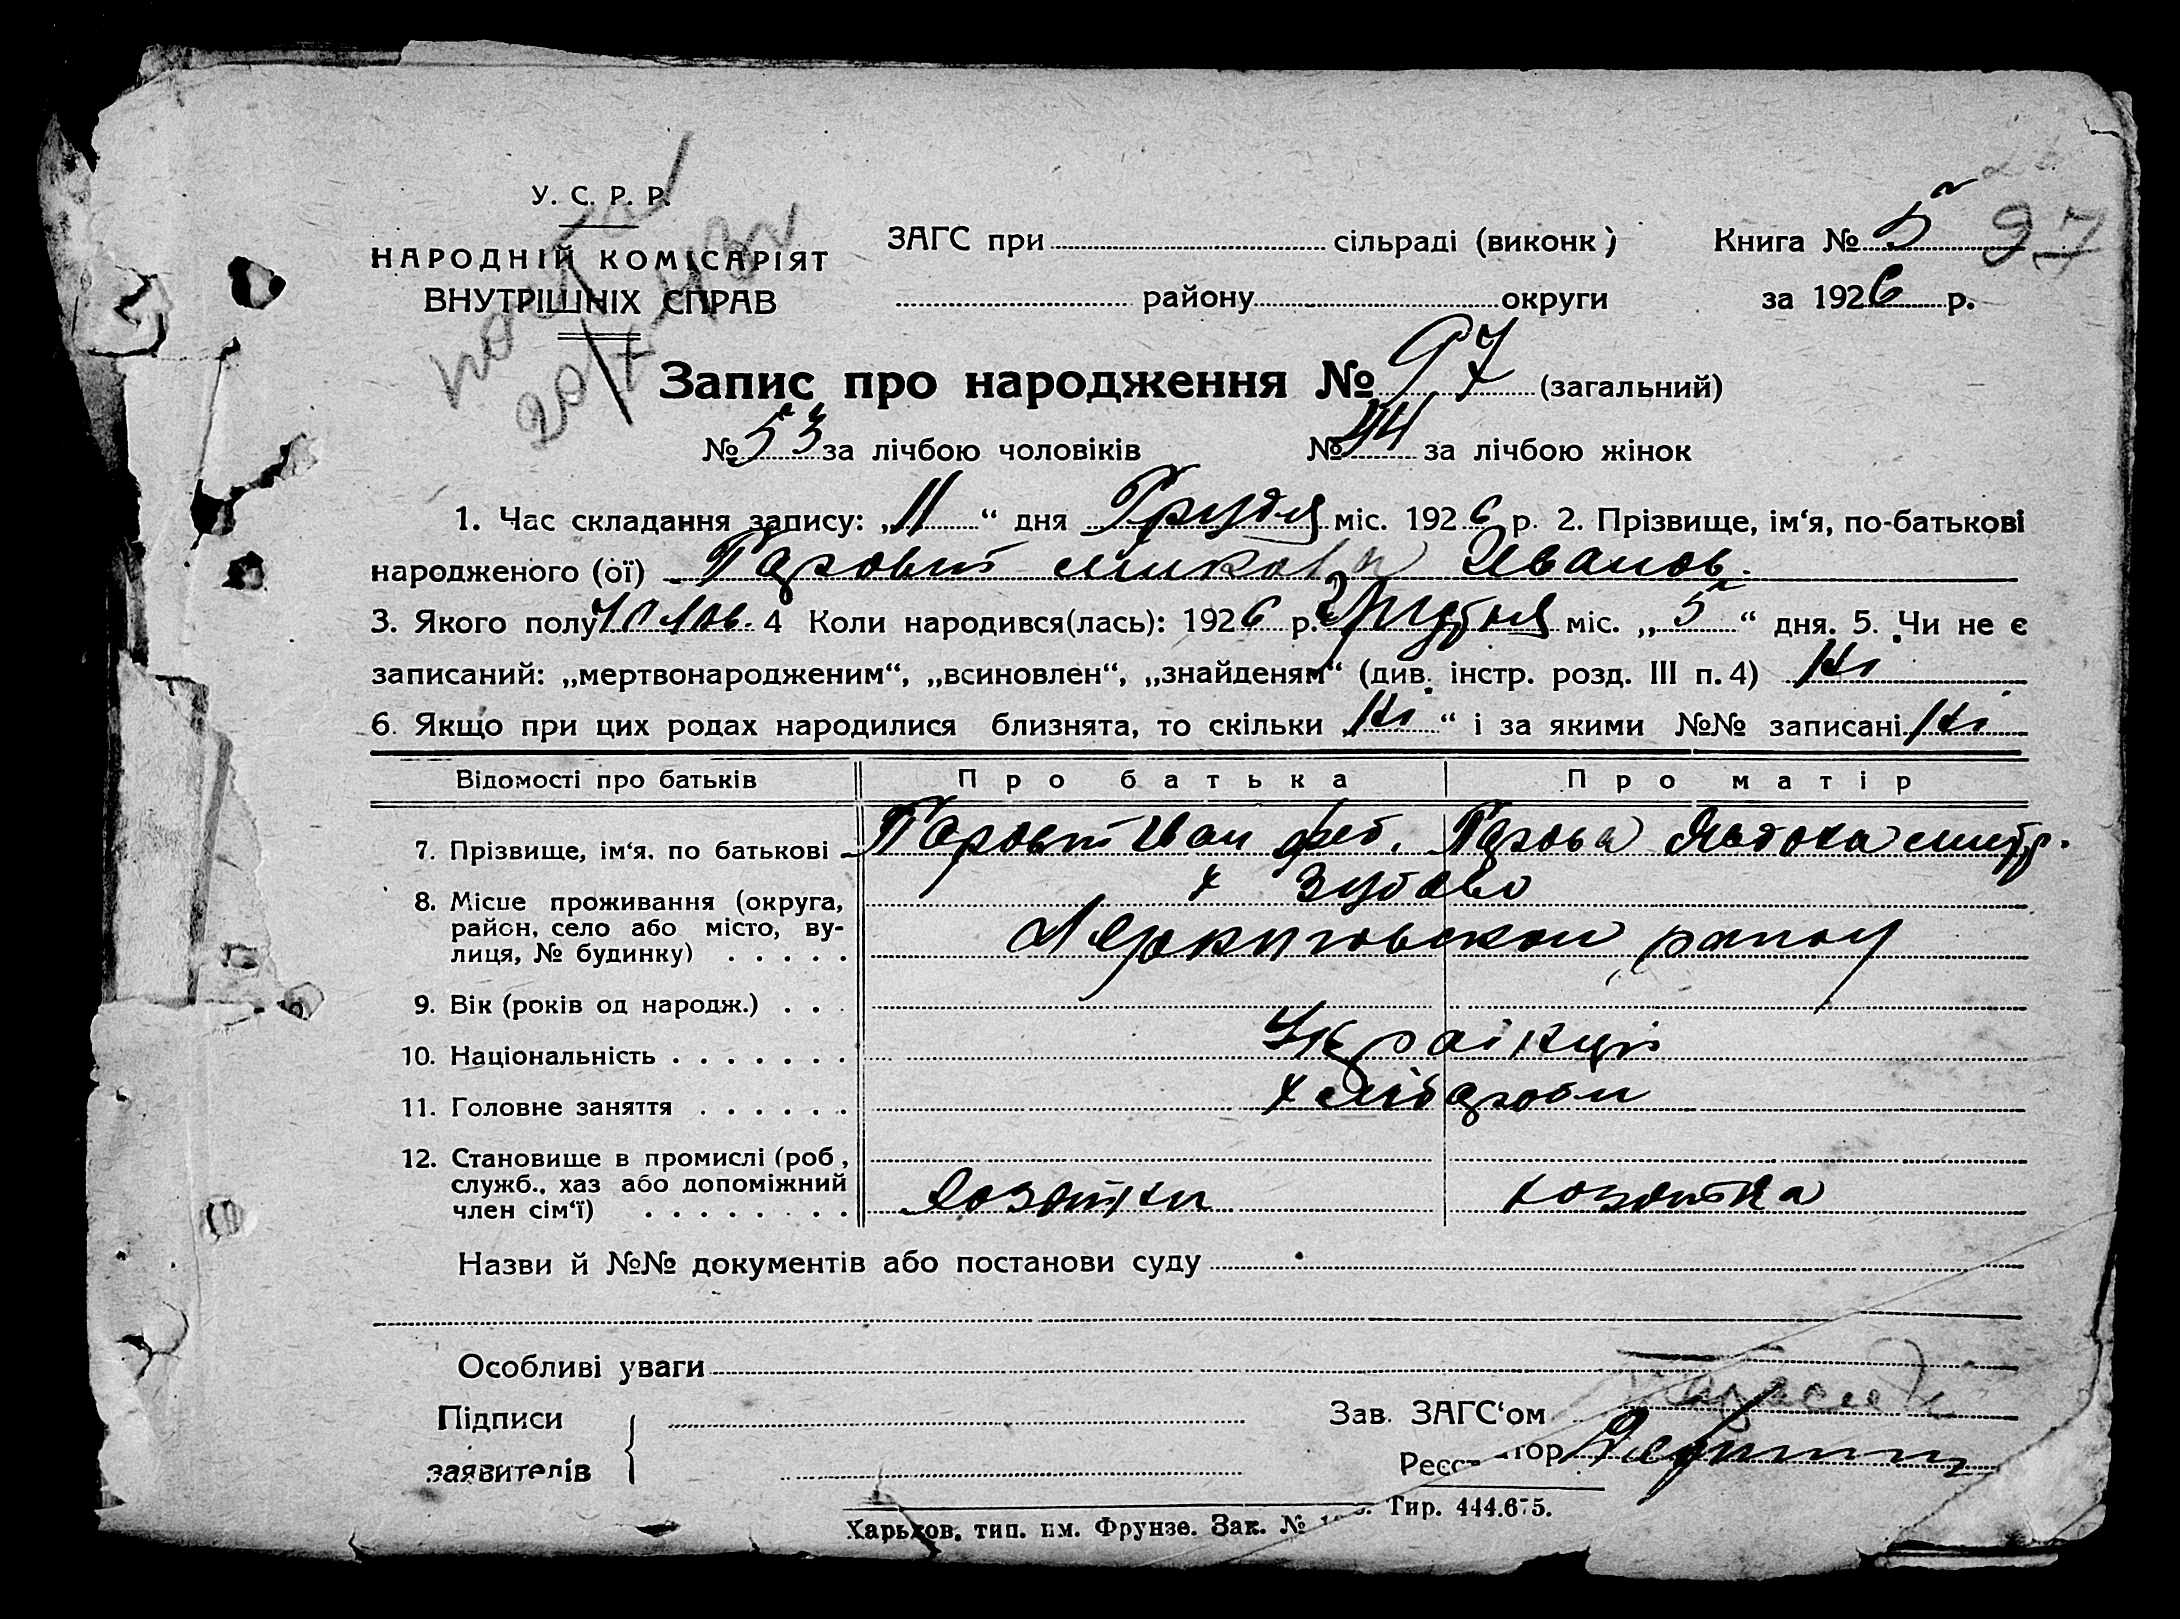 У. С. Р. Р.
НАРОДНІЙ КОМІСАРІЯТ
ВНУТРІШНІХ СПРАВ
ЗАГС при сільраді (виконк)
району округи
Книга № 5
97
за 1926 р.
Запис про народження № 97 (загальний)
№ 53 за лічбою чоловіків № 44 за лічбою жінок
1. Час складання запису: „11“ дня Грудня міс. 1926 р. 2. Прізвище, ім‘я, по-батькові
народженого (ої) Иванов.
3. Якого полу чолов. 4 Коли народився(лась): 1926 р. Грудня міс. „5“ дня. 5. Чи не є
записаний: „мертвонародженим“, „всиновлен“, „знайденям“ (див. інстр. розд. III п. 4) Ні
6. Якщо при цих родах народилися близнята, то скільки „Ні“ і за якими №№ записані Ні
Відомості про батьків Про батька Про матір
7. Прізвище, ім‘я, по батькові Иван
8. Місце проживання (округа,
район, село або місто, ву-
лиця, № будинку)
9. Вік (років од народж.)
10. Національність Українці
11. Головне заняття хлібароби
12. Становище в промислі (роб,
служб., хаз або допоміжний
член сім‘ї) хозяйка
Назви й №№ документів або постанови суду
Особливі уваги
Підписи
заявителів
Зав. ЗАГС‘ом
Харьков, тип. им. Фрунзе. Зак. № Тир. 444.675.